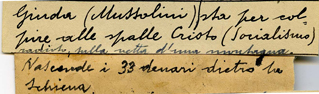 Giuda (Mussolini) sta per col-
pire alle spalle Cristo (Socialismo)
seduto, sulla vetta d'una montagna.
Nasconde i 33 denari dietro la
schiena.